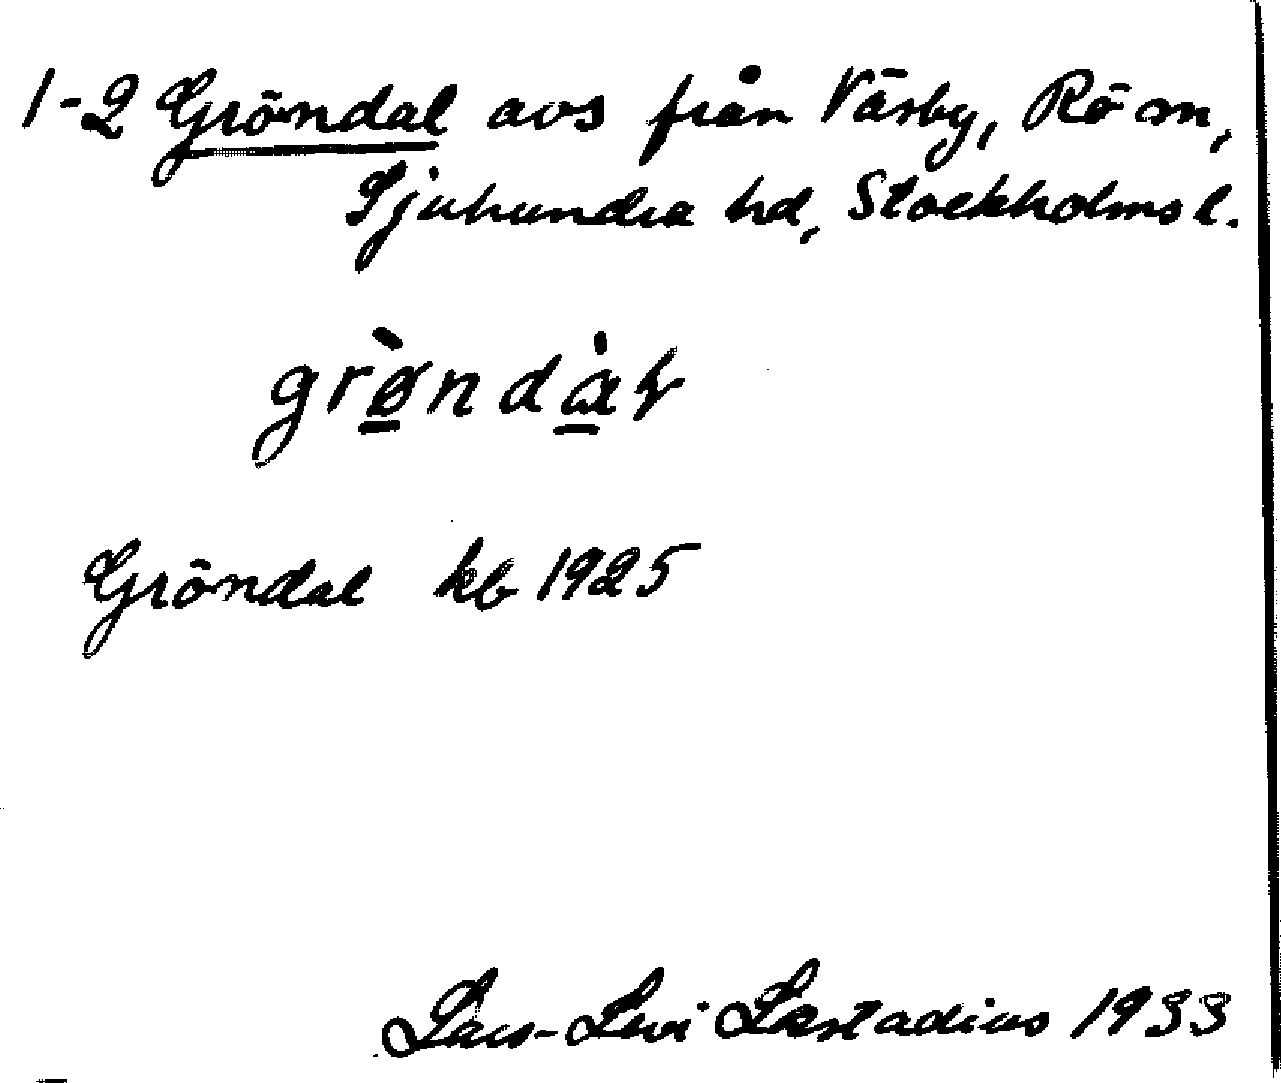 1-2 Gröndal avs från Väsby, Rö sn,
Sjuhundra hd, Stockholms l.
grø̀ndàɫ
Gröndal kb 1925
Lars-Levi Læstadius 1933